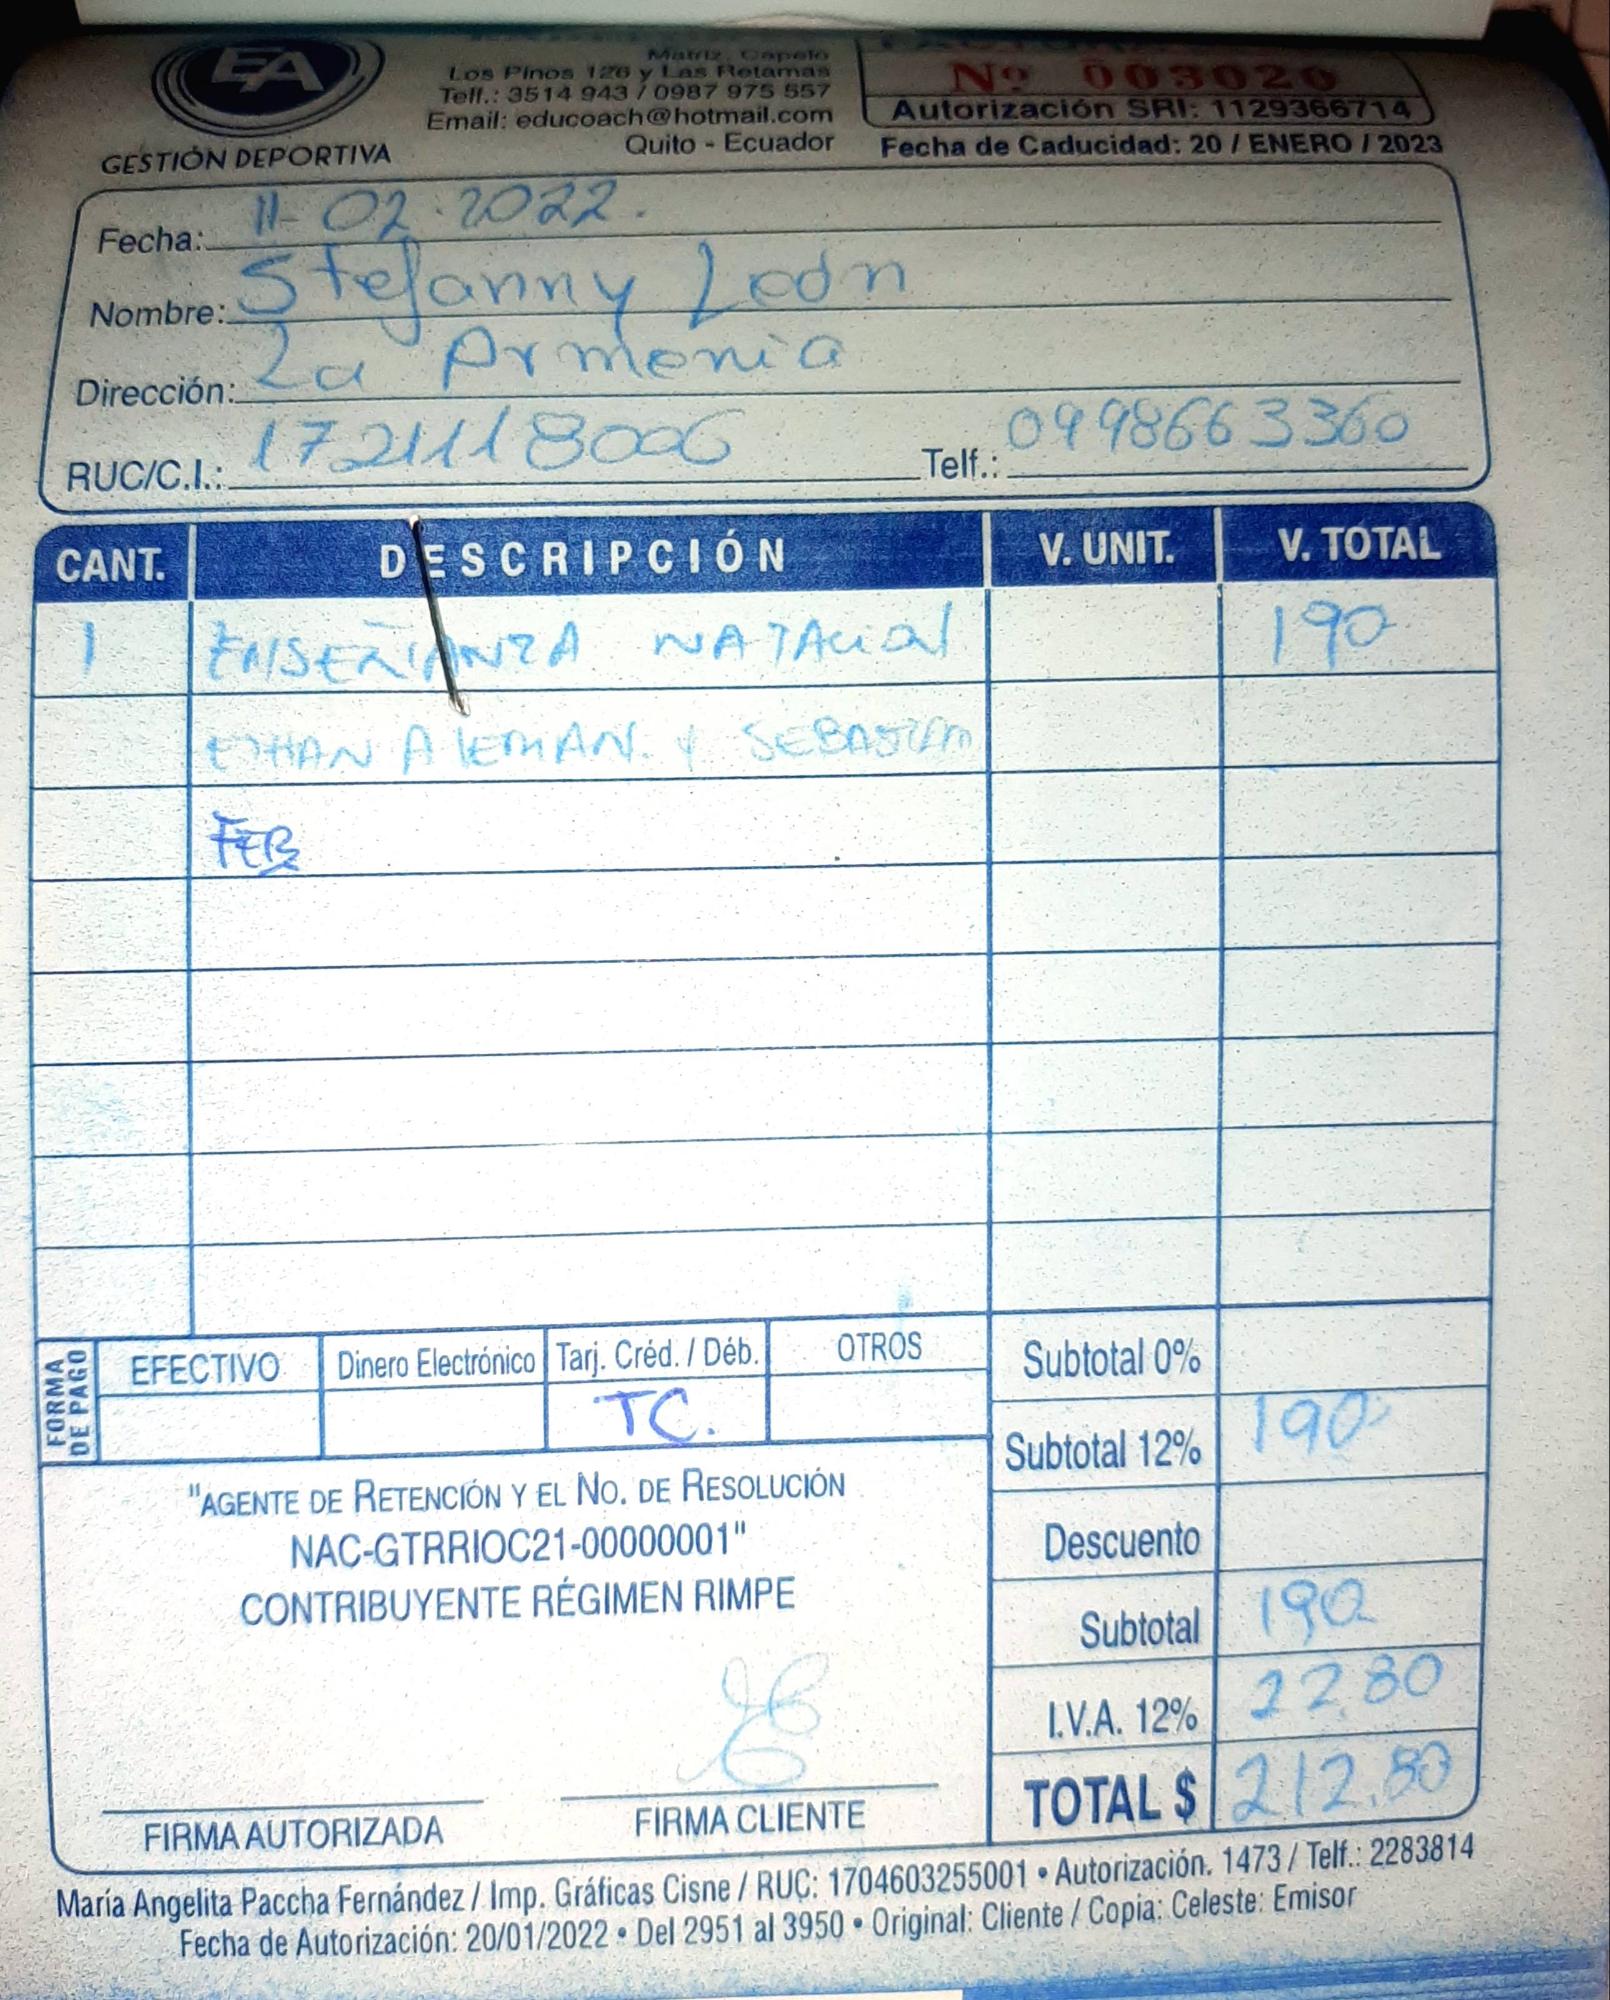 EA
GESTIÓN DEPORTIVA
Matriz, Capelo
Los Pinos 126 y Las Retamas
Telf.: 3514 943 / 0987 975 557
Email: educoach@hotmail.com
Quito - Ecuador
Nº 003020
Autorización SRI: 1129366714
Fecha de Caducidad: 20 / ENERO / 2023
Fecha: 11-02-2022.
Nombre: Stefanny León
Dirección: La Armonia
RUC/C.I.: 1721118006 Telf.: 0998663360
CANT. DESCRIPCIÓN V. UNIT. V. TOTAL
1 ENSEÑANZA NATACION 190
ETHAN ALEMAN. Y SEBASTIAN
FEB
FORMA DE PAGO
EFECTIVO Dinero Electrónico Tarj. Créd. / Déb. OTROS
TC.
Subtotal 0%
Subtotal 12% 190
Descuento
Subtotal 190
I.V.A. 12% 22.80
TOTAL $ 212.80
"AGENTE DE RETENCIÓN Y EL NO. DE RESOLUCIÓN
NAC-GTRRIOC21-00000001"
CONTRIBUYENTE RÉGIMEN RIMPE
FIRMA AUTORIZADA FIRMA CLIENTE
María Angelita Paccha Fernández / Imp. Gráficas Cisne / RUC: 1704603255001 • Autorización. 1473 / Telf.: 2283814
Fecha de Autorización: 20/01/2022 • Del 2951 al 3950 • Original: Cliente / Copia: Celeste: Emisor